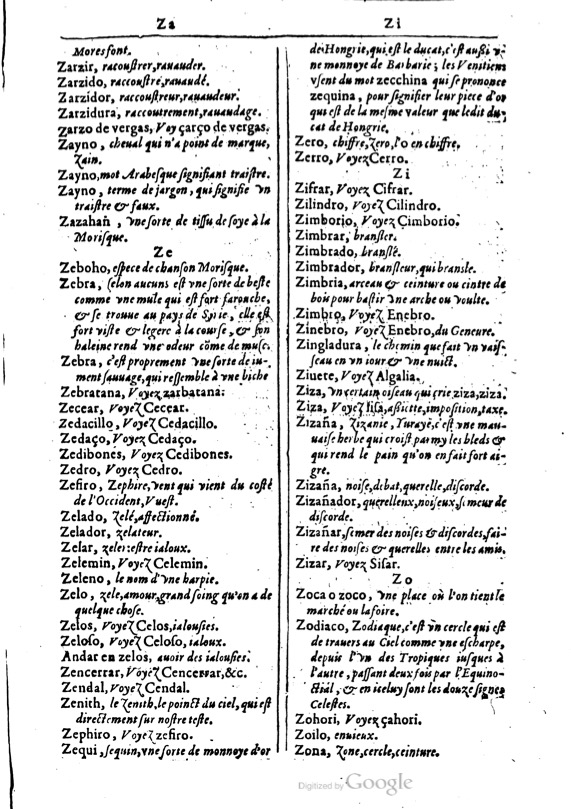 Za
Mores font.
Zarzir, racoustrer, rauauder.
Zarzido, raccoustré, rauaudé.
Zarzidor, raccoustreur, rauaudeur.
Zarzidura, raccoutrement, rauaudage.
Zarzo de vergas, Voy çarço de vergas.
Zayno, cheual qui n'a point de marque,
Zain.
Zayno, mot Arabesque signifiant traistre.
Zayno, terme de jargon, qui signifie vn
traistre & faux.
Zazahañ, vne sorte de tissu de soye à la
Morisque.
Ze
Zeboho, espece de chanson Morisque.
Zebra, selon aucuns est vne sorte de beste
comme vne mule qui est fort farouche,
& se trouue au pays de Syrie, elle est
fort viste & legere à la course, & son
baleine rend vne odeur cõme de musc.
Zebra, c'est proprement vne sorte de iu-
ment sauuage, qui ressemble à vne biche
Zebratana, Voyez zarbatana:
Zecear, Voyez Cecear.
Zedacillo, Voyez Cedacillo.
Zedaço, Voyez Cedaço.
Zedibones, Voyez Cedibones.
Zedro, Voyez Cedro.
Zefiro, Zephire, vent qui vient du costé
de l'Occident, Vuest.
Zelado, zelé, affectionné.
Zelador, zelateur.
Zelar, zeler: estre ialoux.
Zelemin, Voyez Celemin.
Zeleno, le nom d'vne harpie.
Zelo, zele, amour, grand soing qu'on a de
quelque chose.
Zelos, Voyez Celos, ialousies.
Zeloso, Voyez Celoso, ialoux.
Andar en zelos, auoir des ialousies.
Zencerrar, Voyez Cencerrar, &c.
Zendal, Voyez Cendal.
Zenith, le Zenith, le poinct du ciel, qui est
directement sur nostre teste.
Zephiro, Voyez zefiro.
Zequi, sequin, vne sorte de monnoye d'or
Zi
de Hongrie, qui est le ducat, c'est aussi v-
ne monnoye de Barbarie; les Venitiens
vsent du mot zecchina qui se prononce
zequina, pour signifier leur piece d'or
qui est de la mesme valeur que ledit du-
cat de Hongrie.
Zero, chiffre, Zero, l'o en chiffre.
Zerro, Voyez Cerro.
Zi
Zifrar, Voyez Cifrar.
Zilindro, Voyez Cilindro.
Zimborio, Voyez Cimborio.
Zimbrar, bransler.
Zimbrado, branslé.
Zimbrador, bransleur, qui bransle.
Zimbria, arceau & ceinture ou cintre de
bois pour bastir vne arche ou voulte.
Zimbro, Voyez Enebro.
Zinebro, Voyez Enebro, du Geneure.
Zingladura, le chemin que fait vn vais-
seau en vn iour & vne nuict.
Ziuete, Voyez Algalia.
Ziza, vn certain oiseau qui crie ziza, ziza.
Ziza, Voyez sisa, assictte, imposition, taxe.
Zizaña, Zizanie, Yuraye, c'est vne mau-
uaise herbe qui croist parmy les bleds &
qui rend le pain qu'on en fait fort ai-
gre.
Zizaña, noise, debat, querelle, discorde.
Zizañador, querelleux, noiseux, semeur de
discorde.
Zizañar, semer des noises & discordes, fai-
re des noises & querelles entre les amis.
Zizar, Voyez Sisar.
Zo
Zoca o zoco, vne place où l'on tient le
marché ou la foire.
Zodiaco, Zodiaque, c'est vn cercle qui est
de trauers au Ciel comme vne escharpe,
depuis l'vn des Tropiques iusques à
l'autre, passant deux fois par l'Equino-
ctial, & en iceluy sont les douze signes
Celestes.
Zohori, Voyez çahori.
Zoilo, enuieux.
Zona, Zone, cercle, ceinture.
Digitized by Google